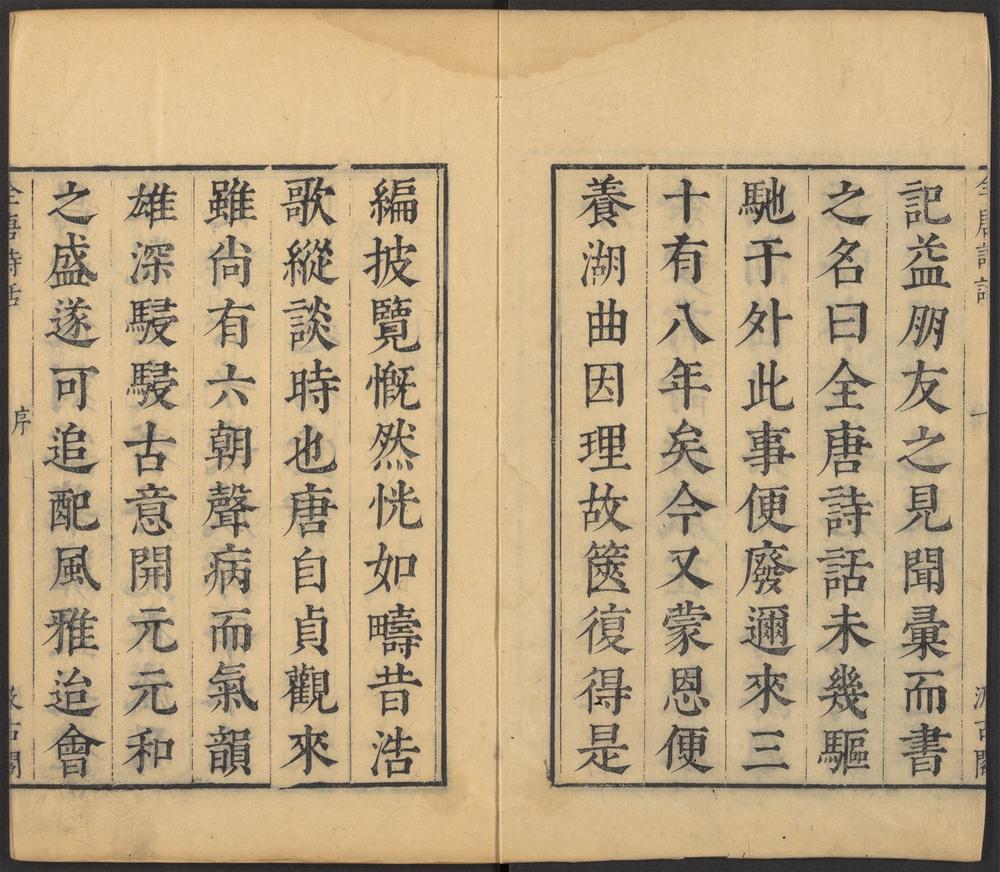 記益朋友之見聞彙而書
之名曰全唐詩話未幾驅
馳于外此事便廢邇來三
十有八年矣今又蒙恩便
養湖曲因理故篋復得是
編披覽慨然恍如疇昔浩
歌縱談時也唐自貞觀來
雖尙有六朝聲病而氣韻
雄深駸駸古意開元元和
之盛遂可追配風雅迨會
全唐詩話
序